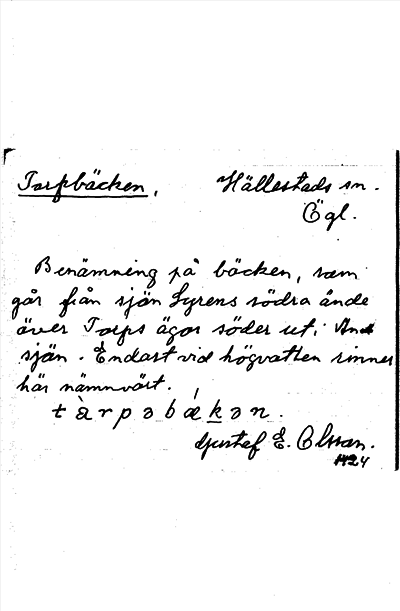 Torpbäcken,
Hällestads sn.
Ögl.
Benämning på bäcken, som
går från sjön Lyrens södra ände
över Torps ägor söder ut i
sjön. Endast vid högvatten rinner
här nämnvärt.
tàrpəbǽkən.
Gustaf E. Olsson.
1924